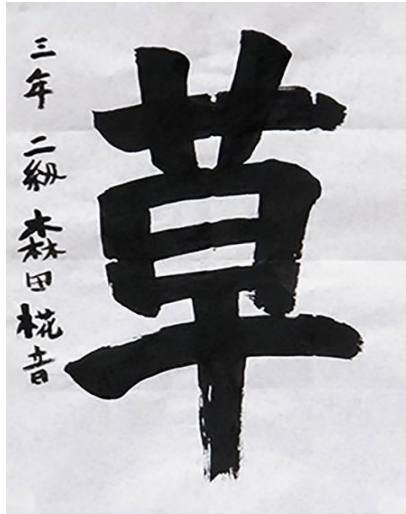 草
三年 二級 森田椛音